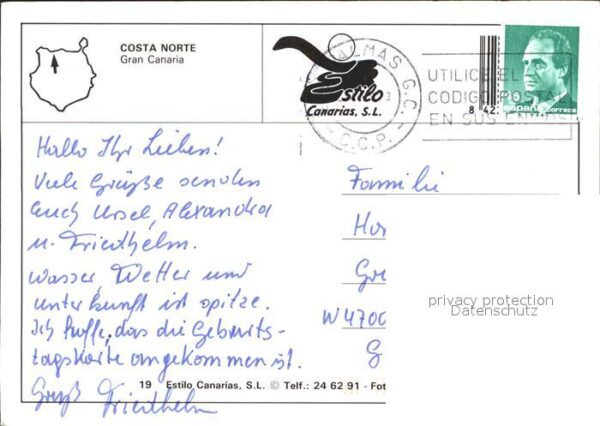 COSTA NORTE
Gran Canaria
Estilo
Canarias, S.L.
PALMAS G.C.
C.C.P.
UTILICE EL
CODIGO POSTAL
EN SUS ENVIOS
8 42
españa correos
Hallo Ihr Lieben!
Viele Grüße senden
Euch Ursel, Alexandra
u. Friedhelm.
Wasser, Wetter und
Unterkunft ist spitze.
Ich hoffe, das die Geburts-
tagskarte angekommen ist.
Gruß Friedhelm
Familie
Hor
Gre
W 4700
G
privacy protection
Datenschutz
19 Estilo Canarias, S.L. © Telf.: 24 62 91 - Fot